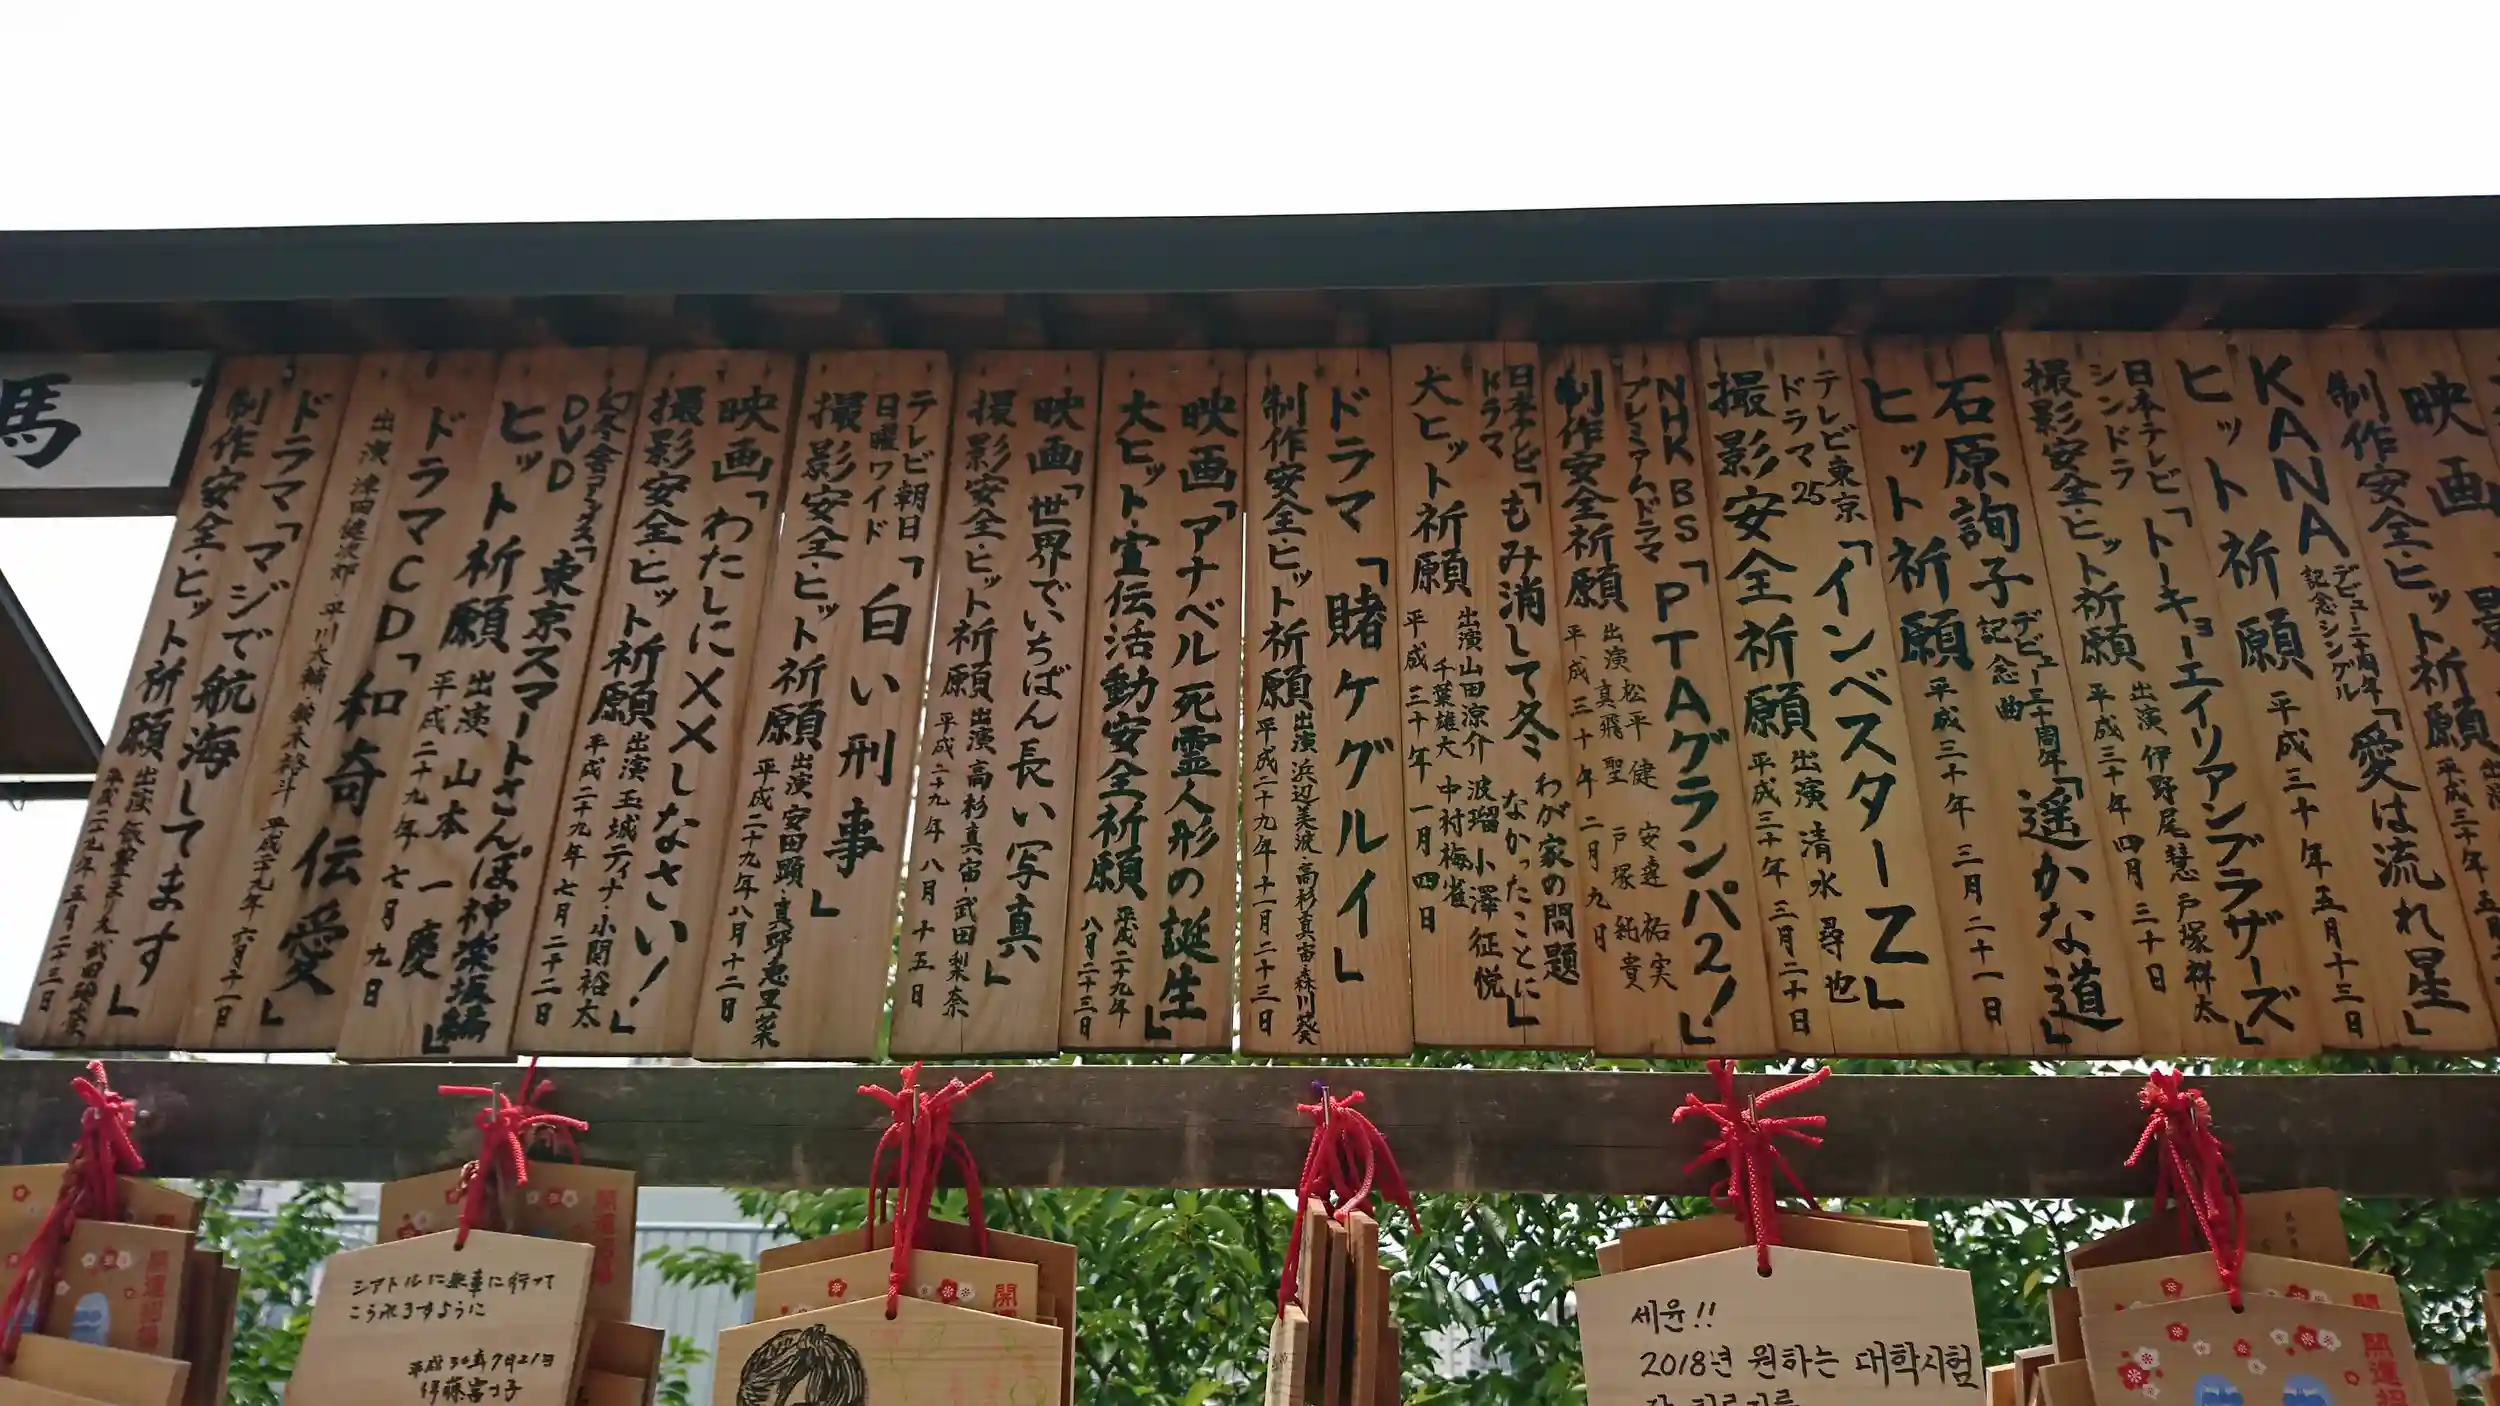 映画
制作安全・ヒット祈願
KANA デビュー二十周年記念シングル「愛は流れ星」
ヒット祈願 平成三十年五月十三日
日本テレビ シンドラ 「トーキョーエイリアンブラザーズ」
撮影安全・ヒット祈願 出演 伊野尾慧 戸塚祥太 平成三十年四月三十日
石原詢子 デビュー三十周年記念曲 「遥かな道」
ヒット祈願 平成三十年三月二十一日
テレビ東京 ドラマ25 「インベスターZ」
撮影安全祈願 出演 清水尋也 平成三十年三月二十日
NHK BS プレミアムドラマ 「PTAグランパ2!」
制作安全祈願 出演 松平健 安達祐実 真飛聖 戸塚純貴 平成三十年二月九日
日本テレビ Kドラマ 「もみ消して冬 わが家の問題なかったことに」
大ヒット祈願 出演 山田涼介 波瑠 小澤征悦 千葉雄大 中村梅雀 平成三十年一月四日
ドラマ「賭ケグルイ」
制作安全・ヒット祈願 出演 浜辺美波・高杉真宙・森川葵 平成二十九年十一月二十三日
映画「アナベル死霊人形の誕生」
大ヒット・宣伝活動安全祈願 平成二十九年八月二十三日
映画「世界でいちばん長い写真」
撮影安全・ヒット祈願 出演 高杉真宙・武田梨奈 平成二十九年八月十五日
テレビ朝日 日曜ワイド 「白い刑事」
撮影安全・ヒット祈願 出演 安田顕・真野恵里菜 平成二十九年八月十二日
映画「わたしに××しなさい!」
撮影安全・ヒット祈願 出演 玉城ティナ・小関裕太 平成二十九年七月二十二日
幻冬舎 DVD 「東京スマートさんぽ神楽坂編」
ヒット祈願 出演 山本一慶 平成二十九年七月九日
ドラマCD「和奇伝愛」
出演 津田健次郎・平川大輔 鈴木裕斗 平成二十九年六月十一日
ドラマ「マジで航海してます」
制作安全・ヒット祈願 出演 飯豊まりえ 武田玲奈 平成二十九年五月二十三日
馬
シアトルに無事に行って
こられますように
平成30年7月21日
伊藤富士子
세윤!!
2018년 원하는 대학시험
開運招福
開
開運招福
開
開運招